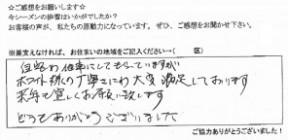 ☆ご感想をお願いします☆
今シーズンの排雪はいかがでしたか?
お客様の声が、私たちの原動力になっています。ぜひ、ご感想をお聞かせ下さい。
※差支えなければ、お住まいの地域をご記入ください…( 区)
しても…っていますが
丁寧さには大変満足しております
来年も宜しくお願い致します
どうもありがとうございました
ご協力ありがとうございました!